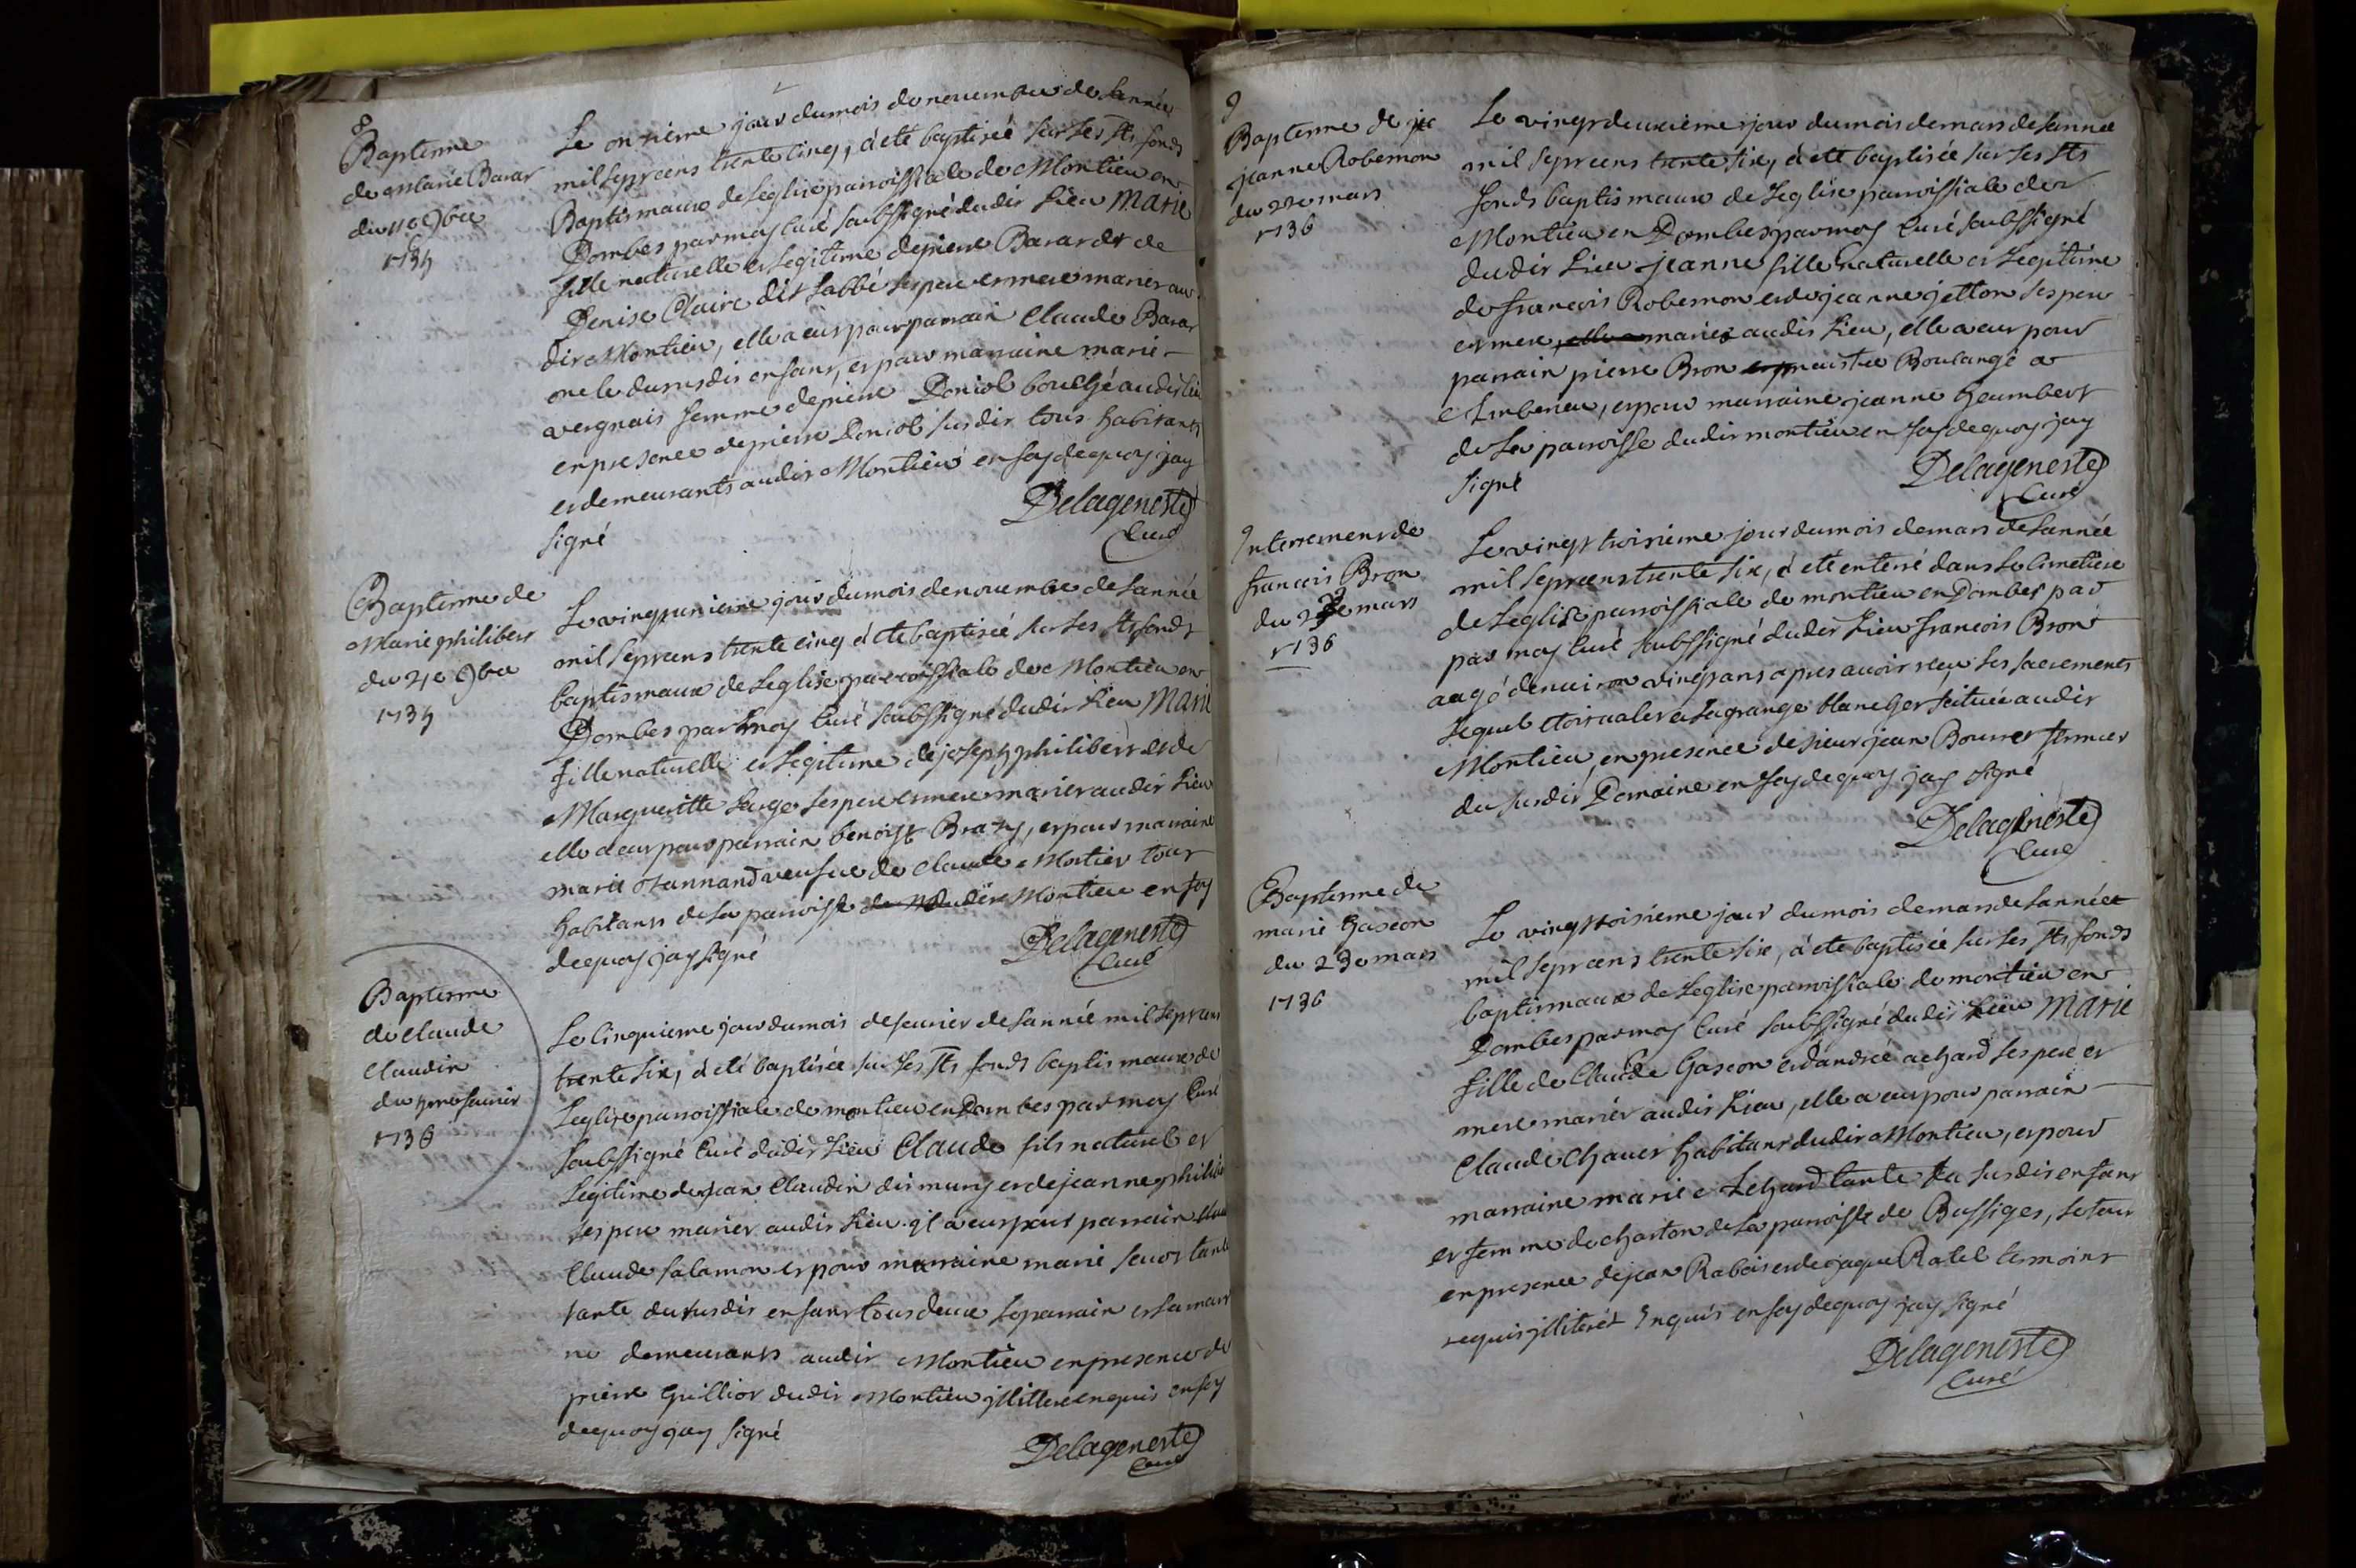 8
Baptenne
de Marie Barar
du 11e 9bre
1735
Le onzieme jour du mois de novembre de Lannée
mil sept cens trente cinq, à eté baptiseé sur Les Sts fonds
Baptismaux de Leglise parroissiale de Montieu en
Dombes par moy Curé soubssigné dudit Lieu Marie
fille naturelle et Legitime de pierre Barar et de
Denise Claire dit Labbé ses pere et mere mariez au
dit Montieu, elle a eut pour parrain Claude Barar
oncle du susdit enfant, et pour marraine marie
vergnais femme de pierre Doniol bouché audit lieu
en presence de pierre Doniol susdit tous habitants
et demeurants audit Montieu en foy de quoy jay
signé
Delageneste
Curé
Baptenne de
Marie philibert
du 21e 9bre
1735
Le vingt unieme jour du mois de novembre de Lannée
mil sept cens trente cinq à eté baptiseé sur Les Sts fonds
baptismaux de Leglise parroissiale de Montieu en
Dombes par moy Curé soubssigné dudit Lieu Marie
fille naturelle et Legitime de joseph philibert et de
Margueritte Large ses pere et mere mariez audit Lieu
elle a eut pour parrain benoist Brazy, et pour marraine
marie Jannand veufve de Claude Mortier tous
habitants de La parroisse dudit Montieu en foy
de quoy jay signé
Delageneste
Curé
Baptenne
de Claude
Claudin
du 5me fevrier
1736
Le Cinquieme jour du mois de fevrier de Lanneé mil sept cens
trente six, à eté baptisée sur Les Sts fonds baptismaux de
Leglise parroissiale de montieu en Dombes par moy Curé
soubssigné Curé dudit Lieu Claude fils naturel et
Legitime de jean Claudin dit muny et de jeanne philib
ses pere mariez audit Lieu il a eut pour parrain
Claude salamon et pour marraine marie tante
tante du susdit enfant tous deux Le parrain et La marrai
ne demeurants audit Montieu en presence de
pierre Guillior dudit Montieu jllitteré enquis en foy
de quoy jay signé
Delageneste
Curé
9
Baptenne de
jeanne Robemon
du 22e mars
1736
Le vingt deuxieme jour du mois de mars de Lanneé
mil sept cens trente six, à eté baptisée sur Les Sts
fonds baptismaux de Leglise parroissiale de
Montieu en Dombes par moy Curé soubssigné
dudit Lieu jeanne fille naturelle et Legitime
de francois Robemon et de jeanne jetton ses pere
et mere, mariez audit Lieu, elle a eut pour
parrain pierre Bron maistre Boulangé a
Amberieu, et pour marraine jeanne heumbert
de La parroisse dudit montieu en foy de quoy jay
signé
Delageneste
Curé
Interrement de
francois Bron
du 23e mars
1736
Le vingt troisieme jour du mois de mars de Lannée
mil sept cens trente six, à eté enterré dans Le Cimetiere
de Leglise parroissiale de montieu en Dombes par
par moy Curé soubssigné dudit Lieu francois Bron
aagé denviron vingt ans apres avoir reçu Les sacrements
Lequel etoit valet a Lagrange blanche scituée audit
Montieu, en presence de sieur jean Bourret fermier
du susdit Domaine en foy de quoy jay signé
Delageneste
Curé
Baptenne de
marie Gascon
du 23e mars
1736
Le vingt troisieme jour du mois de mars de Lanneé
mil sept cens trente six, à eté baptisée sur Les Sts fonds
baptismaux de Leglise parroissiale de montieu en
Dombes par moy Curé soubssigné dudit Lieu Marie
fille de Claude Gascon et dandreé achard ses pere et
mere mariez audit Lieu, elle a eut pour parrain
Claude Chaver habitant dudit Montieu, et pour
marraine marie Achard tante du susdit enfant
et femme de charton de La parroisse de Bussiges, Le tout
en presence de jean Rabois et de jaque Ratel temoins
requis jlliterés Enquis en foy de quoy jay signé
Delageneste
Curé